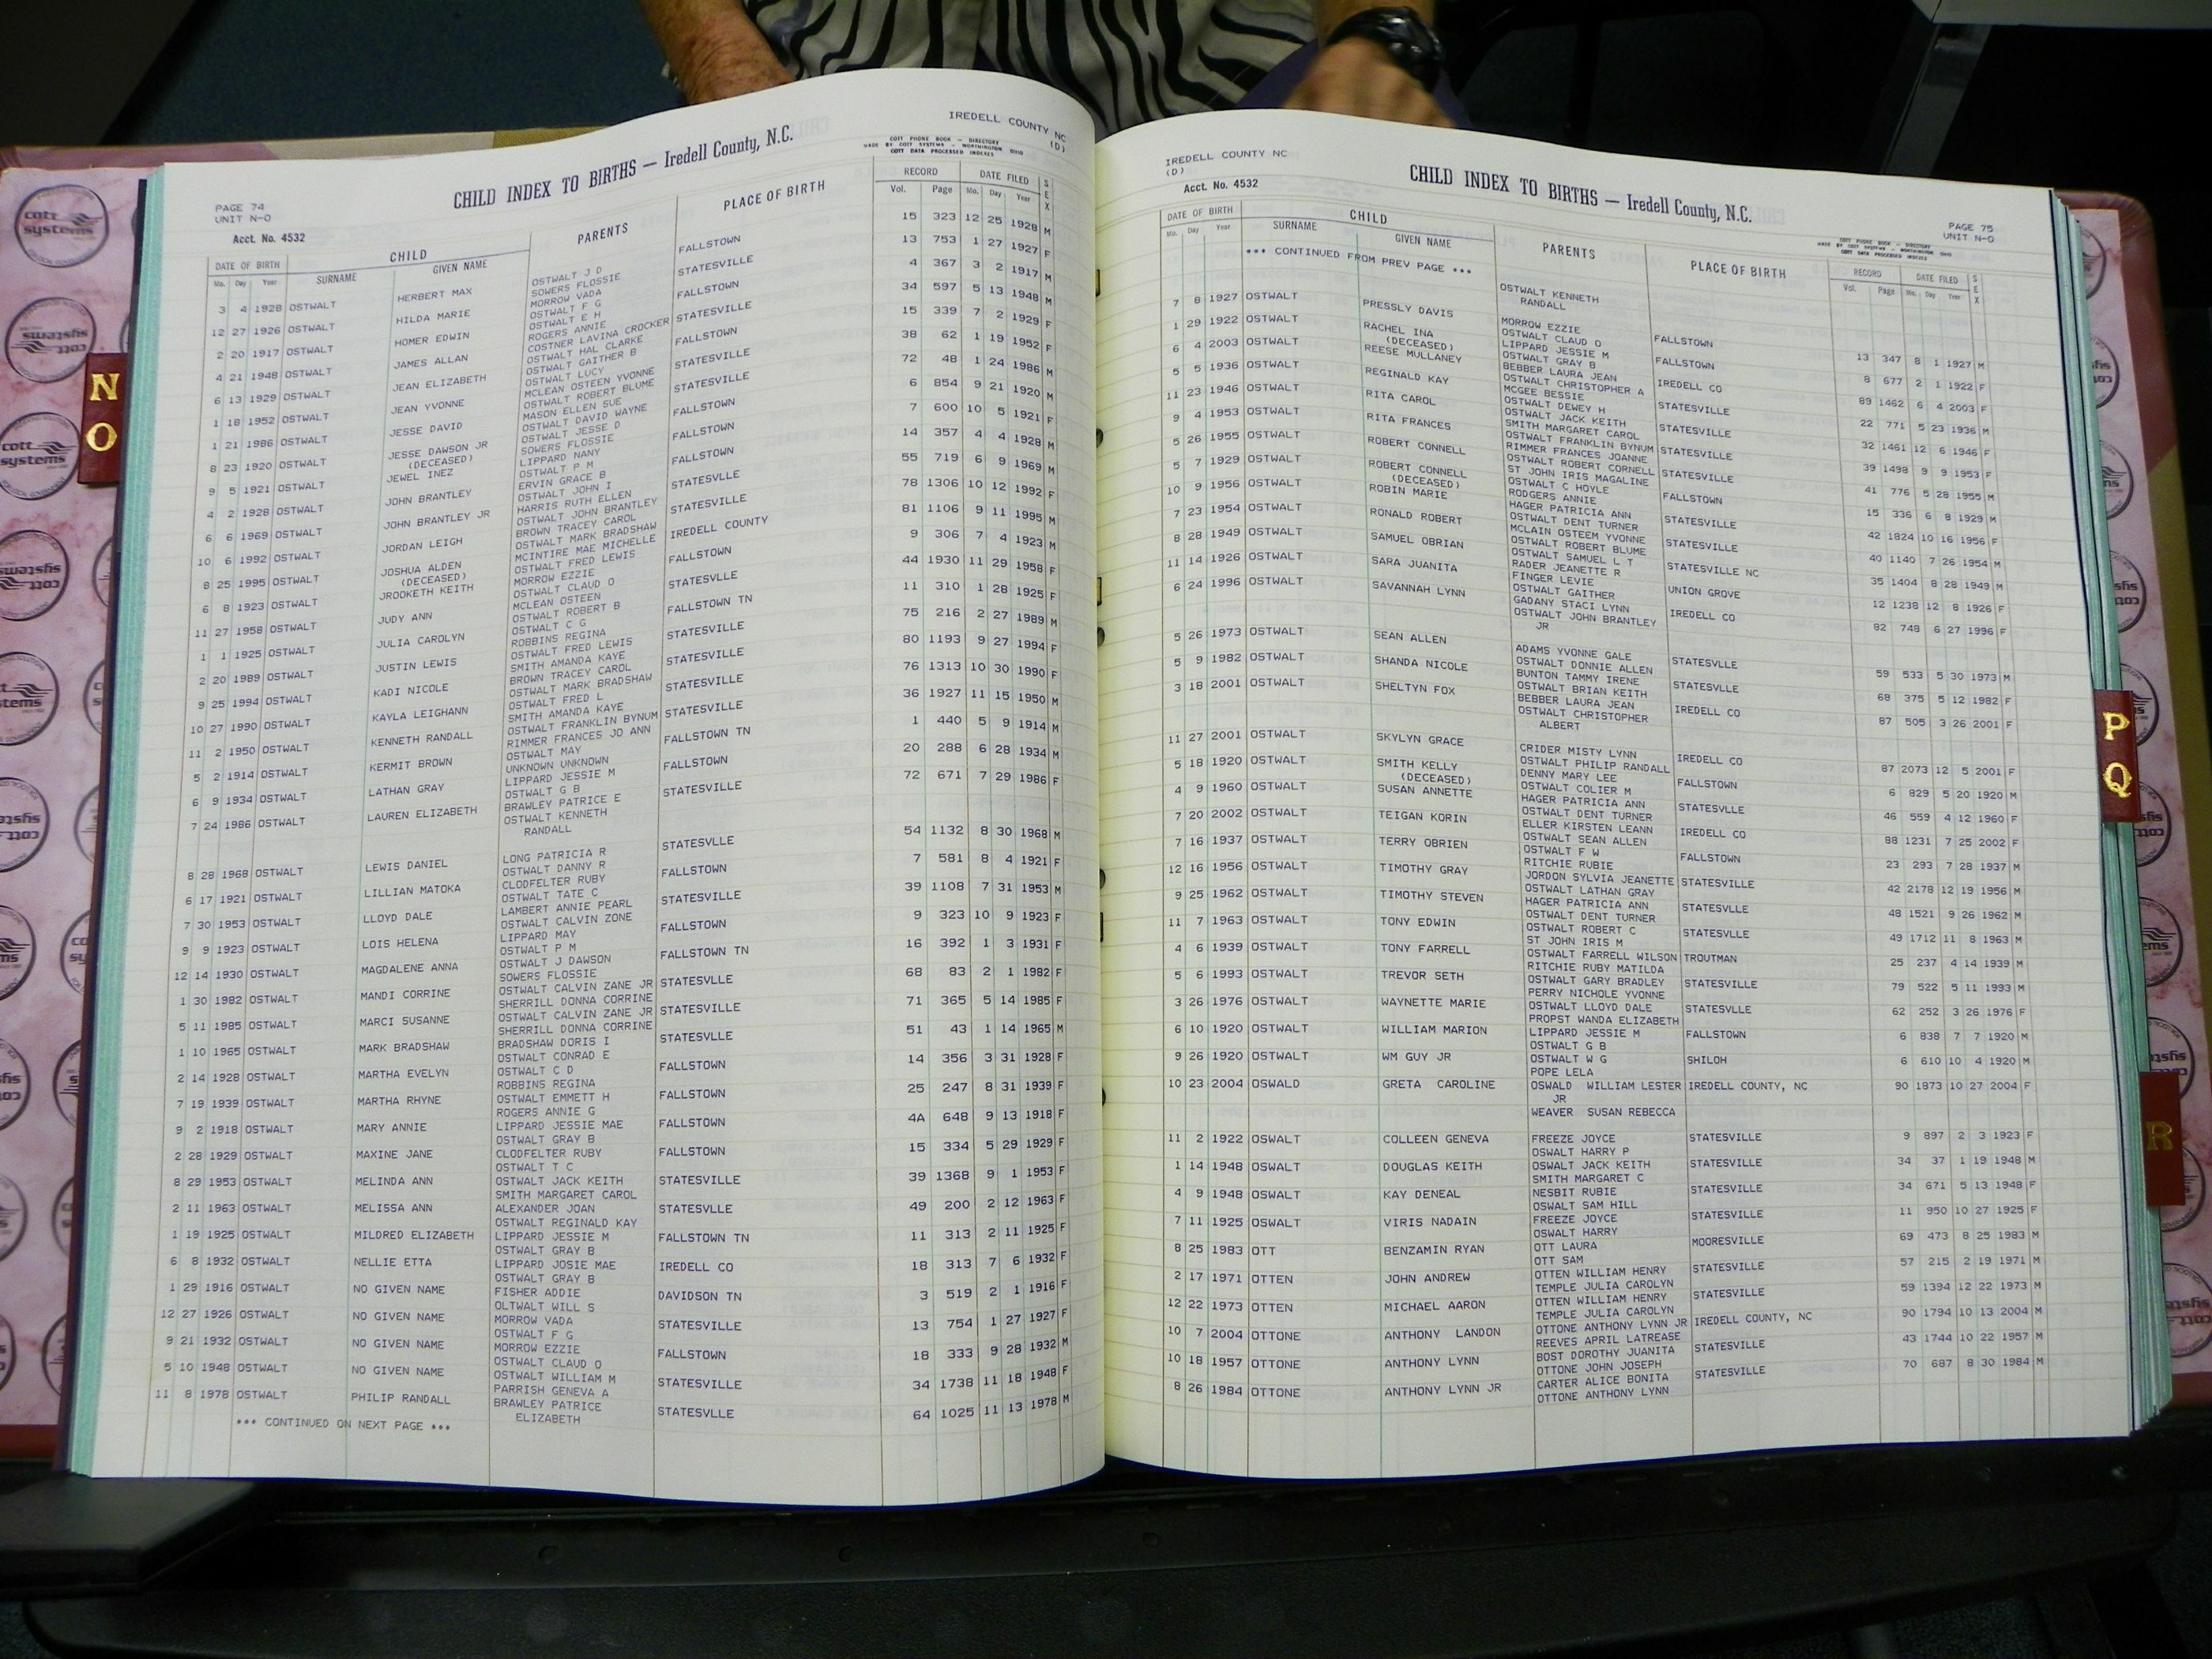 IREDELL COUNTY NC
(D)
CHILD INDEX TO BIRTHS — Iredell County, N.C.
COTT PHONE BOOK — DIRECTORY
MADE BY COTT SYSTEMS — WORTHINGTON OHIO
COTT DATA PROCESSED INDEXES
PAGE 74
UNIT N-O
Acct. No. 4532
DATE OF BIRTH CHILD PARENTS PLACE OF BIRTH RECORD DATE FILED SEX
Mo. Day Year SURNAME GIVEN NAME Vol. Page Mo. Day Year
3 4 1928 OSTWALT HERBERT MAX OSTWALT J D FALLSTOWN 15 323 12 25 1928 M
SOWERS FLOSSIE
12 27 1926 OSTWALT HILDA MARIE MORROW VADA STATESVILLE 13 753 1 27 1927 F
OSTWALT F G
2 20 1917 OSTWALT HOMER EDWIN OSTWALT E H FALLSTOWN 4 367 3 2 1917 M
ROGERS ANNIE
4 21 1948 OSTWALT JAMES ALLAN COSTNER LAVINA CROCKER STATESVILLE 34 597 5 13 1948 M
OSTWALT HAL CLARKE
6 13 1929 OSTWALT JEAN ELIZABETH OSTWALT GAITHER B FALLSTOWN 15 339 7 2 1929 F
OSTWALT LUCY
1 18 1952 OSTWALT JEAN YVONNE MCLEAN OSTEEN YVONNE STATESVILLE 38 62 1 19 1952 F
OSTWALT ROBERT BLUME
1 21 1986 OSTWALT JESSE DAVID MASON ELLEN SUE STATESVILLE 72 48 1 24 1986 M
OSTWALT DAVID WAYNE
8 23 1920 OSTWALT JESSE DAWSON JR OSTWALT JESSE D FALLSTOWN 6 854 9 21 1920 M
(DECEASED) SOWERS FLOSSIE
9 5 1921 OSTWALT JEWEL INEZ LIPPARD NANY FALLSTOWN 7 600 10 5 1921 F
OSTWALT P M
4 2 1928 OSTWALT JOHN BRANTLEY ERVIN GRACE B FALLSTOWN 14 357 4 4 1928 M
OSTWALT JOHN I
6 6 1969 OSTWALT JOHN BRANTLEY JR HARRIS RUTH ELLEN STATESVLLE 55 719 6 9 1969 M
OSTWALT JOHN BRANTLEY
10 6 1992 OSTWALT JORDAN LEIGH BROWN TRACEY CAROL STATESVILLE 78 1306 10 12 1992 F
OSTWALT MARK BRADSHAW
8 25 1995 OSTWALT JOSHUA ALDEN MCINTIRE MAE MICHELLE IREDELL COUNTY 81 1106 9 11 1995 M
(DECEASED) OSTWALT FRED LEWIS
6 8 1923 OSTWALT JROOKETH KEITH MORROW EZZIE FALLSTOWN 9 306 7 4 1923 M
OSTWALT CLAUD O
11 27 1958 OSTWALT JUDY ANN MCLEAN OSTEEN STATESVLLE 44 1930 11 29 1958 F
OSTWALT ROBERT B
1 1 1925 OSTWALT JULIA CAROLYN OSTWALT C G FALLSTOWN TN 11 310 1 28 1925 F
ROBBINS REGINA
2 20 1989 OSTWALT JUSTIN LEWIS OSTWALT FRED LEWIS STATESVILLE 75 216 2 27 1989 M
SMITH AMANDA KAYE
9 25 1994 OSTWALT KADI NICOLE BROWN TRACEY CAROL STATESVILLE 80 1193 9 27 1994 F
OSTWALT MARK BRADSHAW
10 27 1990 OSTWALT KAYLA LEIGHANN OSTWALT FRED L STATESVILLE 76 1313 10 30 1990 F
SMITH AMANDA KAYE
11 2 1950 OSTWALT KENNETH RANDALL OSTWALT FRANKLIN BYNUM STATESVILLE 36 1927 11 15 1950 M
RIMMER FRANCES JO ANN
5 2 1914 OSTWALT KERMIT BROWN OSTWALT MAY FALLSTOWN TN 1 440 5 9 1914 M
UNKNOWN UNKNOWN
6 9 1934 OSTWALT LATHAN GRAY LIPPARD JESSIE M FALLSTOWN 20 288 6 28 1934 M
OSTWALT G B
7 24 1986 OSTWALT LAUREN ELIZABETH BRAWLEY PATRICE E STATESVILLE 72 671 7 29 1986 F
OSTWALT KENNETH
RANDALL
8 28 1968 OSTWALT LEWIS DANIEL LONG PATRICIA R STATESVLLE 54 1132 8 30 1968 M
OSTWALT DANNY R
6 17 1921 OSTWALT LILLIAN MATOKA CLODFELTER RUBY FALLSTOWN 7 581 8 4 1921 F
OSTWALT TATE C
7 30 1953 OSTWALT LLOYD DALE LAMBERT ANNIE PEARL STATESVILLE 39 1108 7 31 1953 M
OSTWALT CALVIN ZONE
9 9 1923 OSTWALT LOIS HELENA LIPPARD MAY FALLSTOWN 9 323 10 9 1923 F
OSTWALT P M
12 14 1930 OSTWALT MAGDALENE ANNA OSTWALT J DAWSON FALLSTOWN TN 16 392 1 3 1931 F
SOWERS FLOSSIE
1 30 1982 OSTWALT MANDI CORRINE OSTWALT CALVIN ZANE JR STATESVLLE 68 83 2 1 1982 F
SHERRILL DONNA CORRINE
5 11 1985 OSTWALT MARCI SUSANNE OSTWALT CALVIN ZANE JR STATESVILLE 71 365 5 14 1985 F
SHERRILL DONNA CORRINE
1 10 1965 OSTWALT MARK BRADSHAW BRADSHAW DORIS I STATESVLLE 51 43 1 14 1965 M
OSTWALT CONRAD E
2 14 1928 OSTWALT MARTHA EVELYN OSTWALT C D FALLSTOWN 14 356 3 31 1928 F
ROBBINS REGINA
7 19 1939 OSTWALT MARTHA RHYNE OSTWALT EMMETT H FALLSTOWN 25 247 8 31 1939 F
ROGERS ANNIE G
9 2 1918 OSTWALT MARY ANNIE LIPPARD JESSIE MAE FALLSTOWN 4A 648 9 13 1918 F
OSTWALT GRAY B
2 28 1929 OSTWALT MAXINE JANE CLODFELTER RUBY FALLSTOWN 15 334 5 29 1929 F
OSTWALT T C
8 29 1953 OSTWALT MELINDA ANN OSTWALT JACK KEITH STATESVILLE 39 1368 9 1 1953 F
SMITH MARGARET CAROL
2 11 1963 OSTWALT MELISSA ANN ALEXANDER JOAN STATESVLLE 49 200 2 12 1963 F
OSTWALT REGINALD KAY
1 19 1925 OSTWALT MILDRED ELIZABETH LIPPARD JESSIE M FALLSTOWN TN 11 313 2 11 1925 F
OSTWALT GRAY B
6 8 1932 OSTWALT NELLIE ETTA LIPPARD JOSIE MAE IREDELL CO 18 313 7 6 1932 F
OSTWALT GRAY B
1 29 1916 OSTWALT NO GIVEN NAME FISHER ADDIE DAVIDSON TN 3 519 2 1 1916 F
OLTWALT WILL S
12 27 1926 OSTWALT NO GIVEN NAME MORROW VADA STATESVILLE 13 754 1 27 1927 F
OSTWALT F G
9 21 1932 OSTWALT NO GIVEN NAME MORROW EZZIE FALLSTOWN 18 333 9 28 1932 M
OSTWALT CLAUD O
5 10 1948 OSTWALT NO GIVEN NAME OSTWALT WILLIAM M STATESVILLE 34 1738 11 18 1948 F
PARRISH GENEVA A
11 8 1978 OSTWALT PHILIP RANDALL BRAWLEY PATRICE STATESVLLE 64 1025 11 13 1978 M
ELIZABETH
*** CONTINUED ON NEXT PAGE ***
IREDELL COUNTY NC
(D)
CHILD INDEX TO BIRTHS — Iredell County, N.C.
Acct. No. 4532
PAGE 75
UNIT N-O
COTT PHONE BOOK — DIRECTORY
MADE BY COTT SYSTEMS — WORTHINGTON OHIO
COTT DATA PROCESSED INDEXES
DATE OF BIRTH CHILD PARENTS PLACE OF BIRTH RECORD DATE FILED SEX
Mo. Day Year SURNAME GIVEN NAME Vol. Page Mo. Day Year
*** CONTINUED FROM PREV PAGE ***
OSTWALT KENNETH
RANDALL
7 8 1927 OSTWALT PRESSLY DAVIS MORROW EZZIE FALLSTOWN 13 347 8 1 1927 M
OSTWALT CLAUD O
1 29 1922 OSTWALT RACHEL INA LIPPARD JESSIE M FALLSTOWN 8 677 2 1 1922 F
(DECEASED) OSTWALT GRAY B
6 4 2003 OSTWALT REESE MULLANEY BEBBER LAURA JEAN IREDELL CO 89 1462 6 4 2003 F
OSTWALT CHRISTOPHER A
5 5 1936 OSTWALT REGINALD KAY MCGEE BESSIE STATESVILLE 22 771 5 23 1936 M
OSTWALT DEWEY H
11 23 1946 OSTWALT RITA CAROL OSTWALT JACK KEITH STATESVILLE 32 1461 12 6 1946 F
SMITH MARGARET CAROL
9 4 1953 OSTWALT RITA FRANCES OSTWALT FRANKLIN BYNUM STATESVILLE 39 1498 9 9 1953 F
RIMMER FRANCES JOANNE
5 26 1955 OSTWALT ROBERT CONNELL OSTWALT ROBERT CORNELL STATESVILLE 41 776 5 28 1955 M
ST JOHN IRIS MAGALINE
5 7 1929 OSTWALT ROBERT CONNELL OSTWALT C HOYLE FALLSTOWN 15 336 6 8 1929 M
(DECEASED) RODGERS ANNIE
10 9 1956 OSTWALT ROBIN MARIE HAGER PATRICIA ANN STATESVILLE 42 1824 10 16 1956 F
OSTWALT DENT TURNER
7 23 1954 OSTWALT RONALD ROBERT MCLAIN OSTEEM YVONNE STATESVILLE NC 40 1140 7 26 1954 M
OSTWALT ROBERT BLUME
8 28 1949 OSTWALT SAMUEL OBRIAN OSTWALT SAMUEL L T UNION GROVE 35 1404 8 28 1949 M
RADER JEANETTE R
11 14 1926 OSTWALT SARA JUANITA FINGER LEVIE IREDELL CO 12 1238 12 8 1926 F
OSTWALT GAITHER
6 24 1996 OSTWALT SAVANNAH LYNN GADANY STACI LYNN 82 748 6 27 1996 F
OSTWALT JOHN BRANTLEY
JR
5 26 1973 OSTWALT SEAN ALLEN ADAMS YVONNE GALE STATESVLLE 59 533 5 30 1973 M
OSTWALT DONNIE ALLEN
5 9 1982 OSTWALT SHANDA NICOLE BUNTON TAMMY IRENE STATESVLLE 68 375 5 12 1982 F
OSTWALT BRIAN KEITH
3 18 2001 OSTWALT SHELTYN FOX BEBBER LAURA JEAN IREDELL CO 87 505 3 26 2001 F
OSTWALT CHRISTOPHER
ALBERT
11 27 2001 OSTWALT SKYLYN GRACE CRIDER MISTY LYNN IREDELL CO 87 2073 12 5 2001 F
OSTWALT PHILIP RANDALL
5 18 1920 OSTWALT SMITH KELLY DENNY MARY LEE FALLSTOWN 6 829 5 20 1920 M
(DECEASED) OSTWALT COLIER M
4 9 1960 OSTWALT SUSAN ANNETTE HAGER PATRICIA ANN STATESVLLE 46 559 4 12 1960 F
OSTWALT DENT TURNER
7 20 2002 OSTWALT TEIGAN KORIN ELLER KIRSTEN LEANN IREDELL CO 88 1231 7 25 2002 F
OSTWALT SEAN ALLEN
7 16 1937 OSTWALT TERRY OBRIEN OSTWALT F W FALLSTOWN 23 293 7 28 1937 M
RITCHIE RUBIE
12 16 1956 OSTWALT TIMOTHY GRAY JORDON SYLVIA JEANETTE STATESVILLE 42 2178 12 19 1956 M
OSTWALT LATHAN GRAY
9 25 1962 OSTWALT TIMOTHY STEVEN HAGER PATRICIA ANN STATESVLLE 48 1521 9 26 1962 M
OSTWALT DENT TURNER
11 7 1963 OSTWALT TONY EDWIN OSTWALT ROBERT C STATESVLLE 49 1712 11 8 1963 M
ST JOHN IRIS M
4 6 1939 OSTWALT TONY FARRELL OSTWALT FARRELL WILSON TROUTMAN 25 237 4 14 1939 M
RITCHIE RUBY MATILDA
5 6 1993 OSTWALT TREVOR SETH OSTWALT GARY BRADLEY STATESVILLE 79 522 5 11 1993 M
PERRY NICHOLE YVONNE
3 26 1976 OSTWALT WAYNETTE MARIE OSTWALT LLOYD DALE STATESVLLE 62 252 3 26 1976 F
PROPST WANDA ELIZABETH
6 10 1920 OSTWALT WILLIAM MARION LIPPARD JESSIE M FALLSTOWN 6 838 7 7 1920 M
OSTWALT G B
9 26 1920 OSTWALT WM GUY JR OSTWALT W G SHILOH 6 610 10 4 1920 M
POPE LELA
10 23 2004 OSWALD GRETA CAROLINE OSWALD WILLIAM LESTER IREDELL COUNTY, NC 90 1873 10 27 2004 F
JR
WEAVER SUSAN REBECCA
11 2 1922 OSWALT COLLEEN GENEVA FREEZE JOYCE STATESVILLE 9 897 2 3 1923 F
OSWALT HARRY P
1 14 1948 OSWALT DOUGLAS KEITH OSWALT JACK KEITH STATESVILLE 34 37 1 19 1948 M
SMITH MARGARET C
4 9 1948 OSWALT KAY DENEAL NESBIT RUBIE STATESVILLE 34 671 5 13 1948 F
OSWALT SAM HILL
7 11 1925 OSWALT VIRIS NADAIN FREEZE JOYCE STATESVILLE 11 950 10 27 1925 F
OSWALT HARRY
8 25 1983 OTT BENZAMIN RYAN OTT LAURA MOORESVILLE 69 473 8 25 1983 M
OTT SAM
2 17 1971 OTTEN JOHN ANDREW OTTEN WILLIAM HENRY STATESVLLE 57 215 2 19 1971 M
TEMPLE JULIA CAROLYN
12 22 1973 OTTEN MICHAEL AARON OTTEN WILLIAM HENRY STATESVLLE 59 1394 12 22 1973 M
TEMPLE JULIA CAROLYN
10 7 2004 OTTONE ANTHONY LANDON OTTONE ANTHONY LYNN JR IREDELL COUNTY, NC 90 1794 10 13 2004 M
REEVES APRIL LATREASE
10 18 1957 OTTONE ANTHONY LYNN BOST DOROTHY JUANITA STATESVLLE 43 1744 10 22 1957 M
OTTONE JOHN JOSEPH
8 26 1984 OTTONE ANTHONY LYNN JR CARTER ALICE BONITA STATESVLLE 70 687 8 30 1984 M
OTTONE ANTHONY LYNN
N
O
P
Q
R
cott
systems